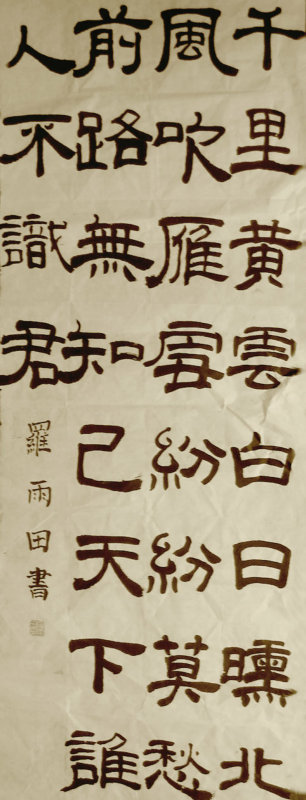 千里黄雲白日曛北
風吹雁雪紛紛莫愁
前路無知己天下誰
人不識君
羅雨田書